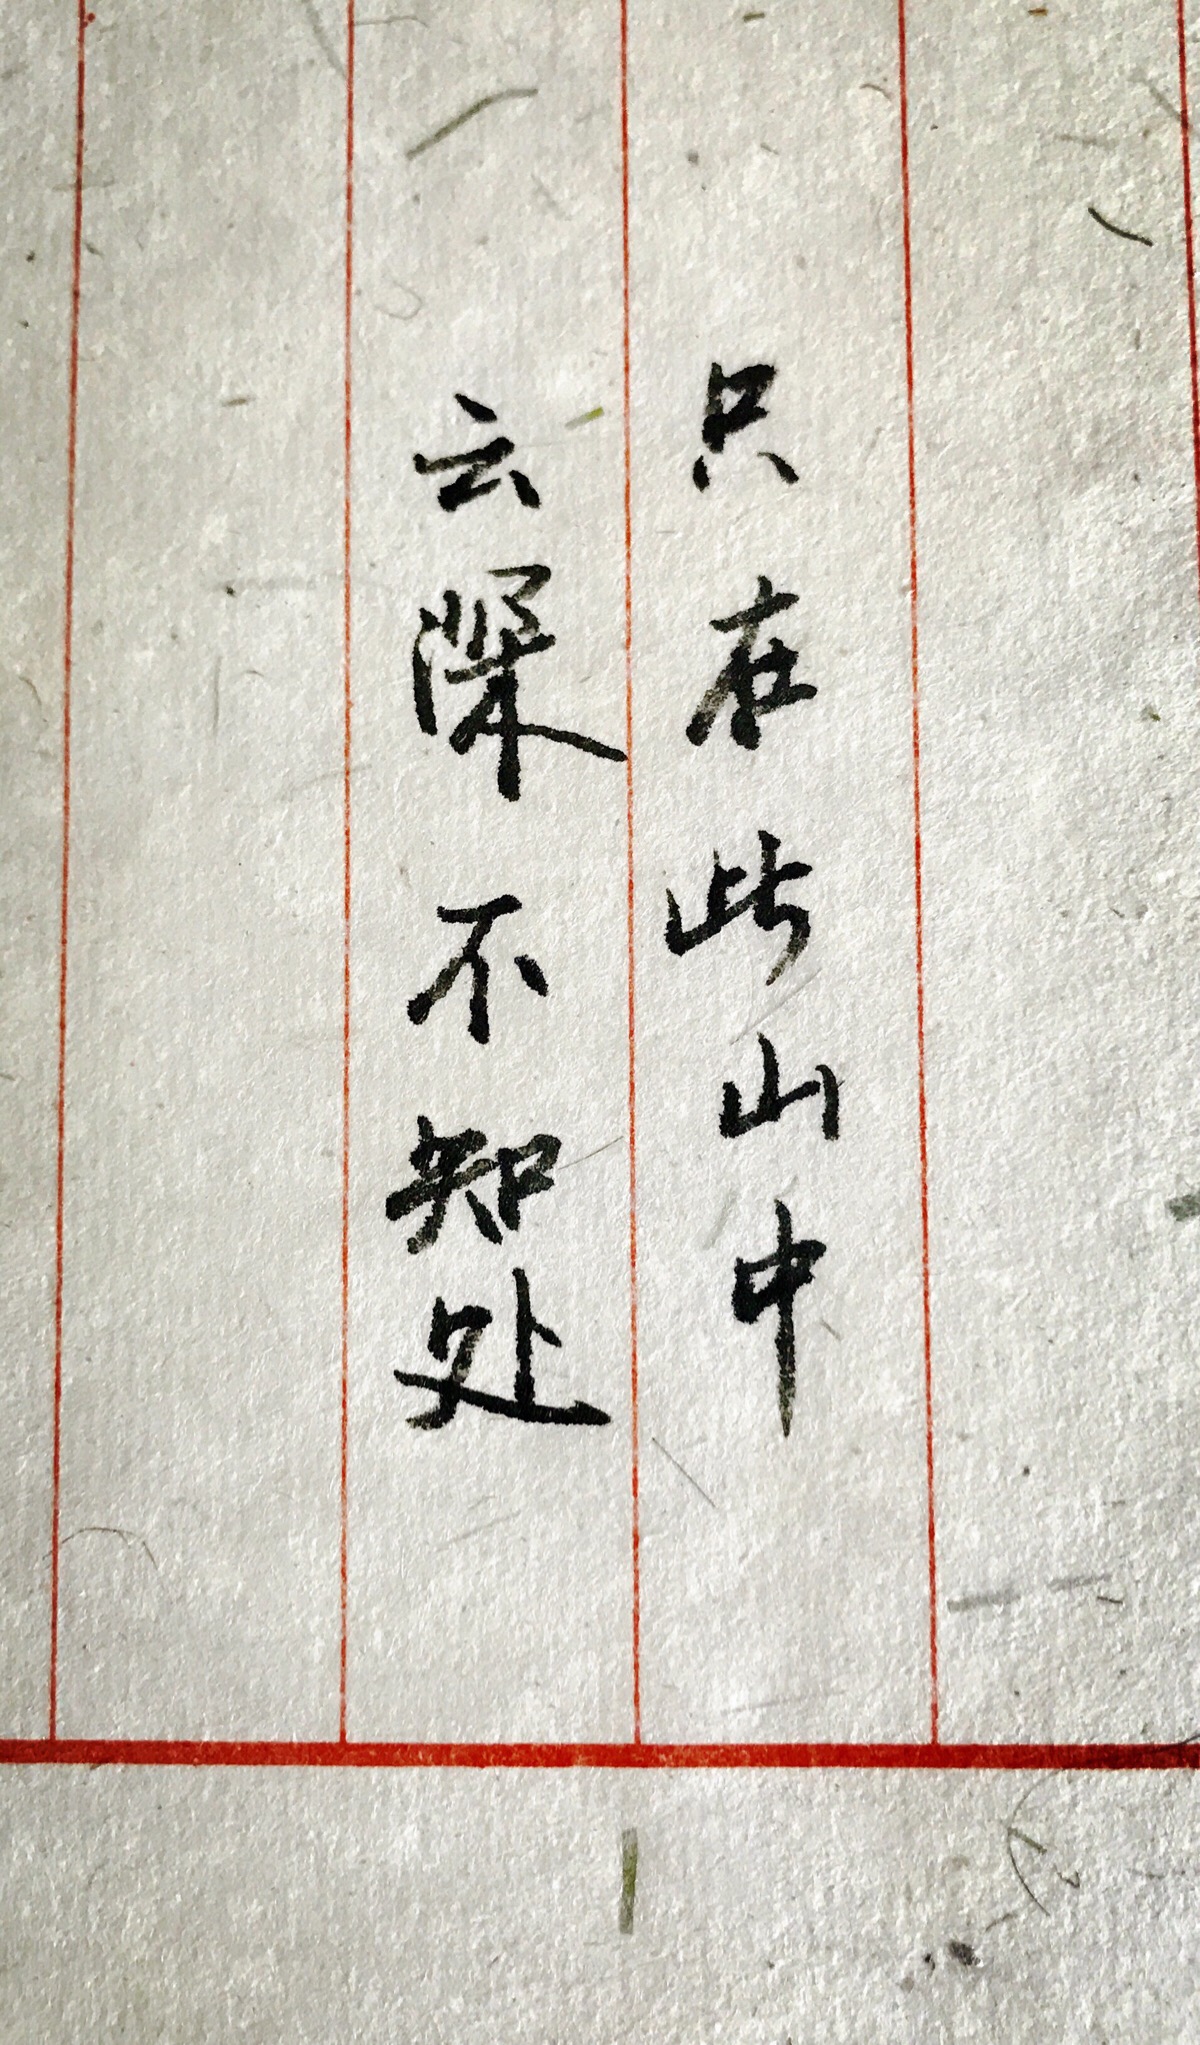 只在此山中
云深不知处